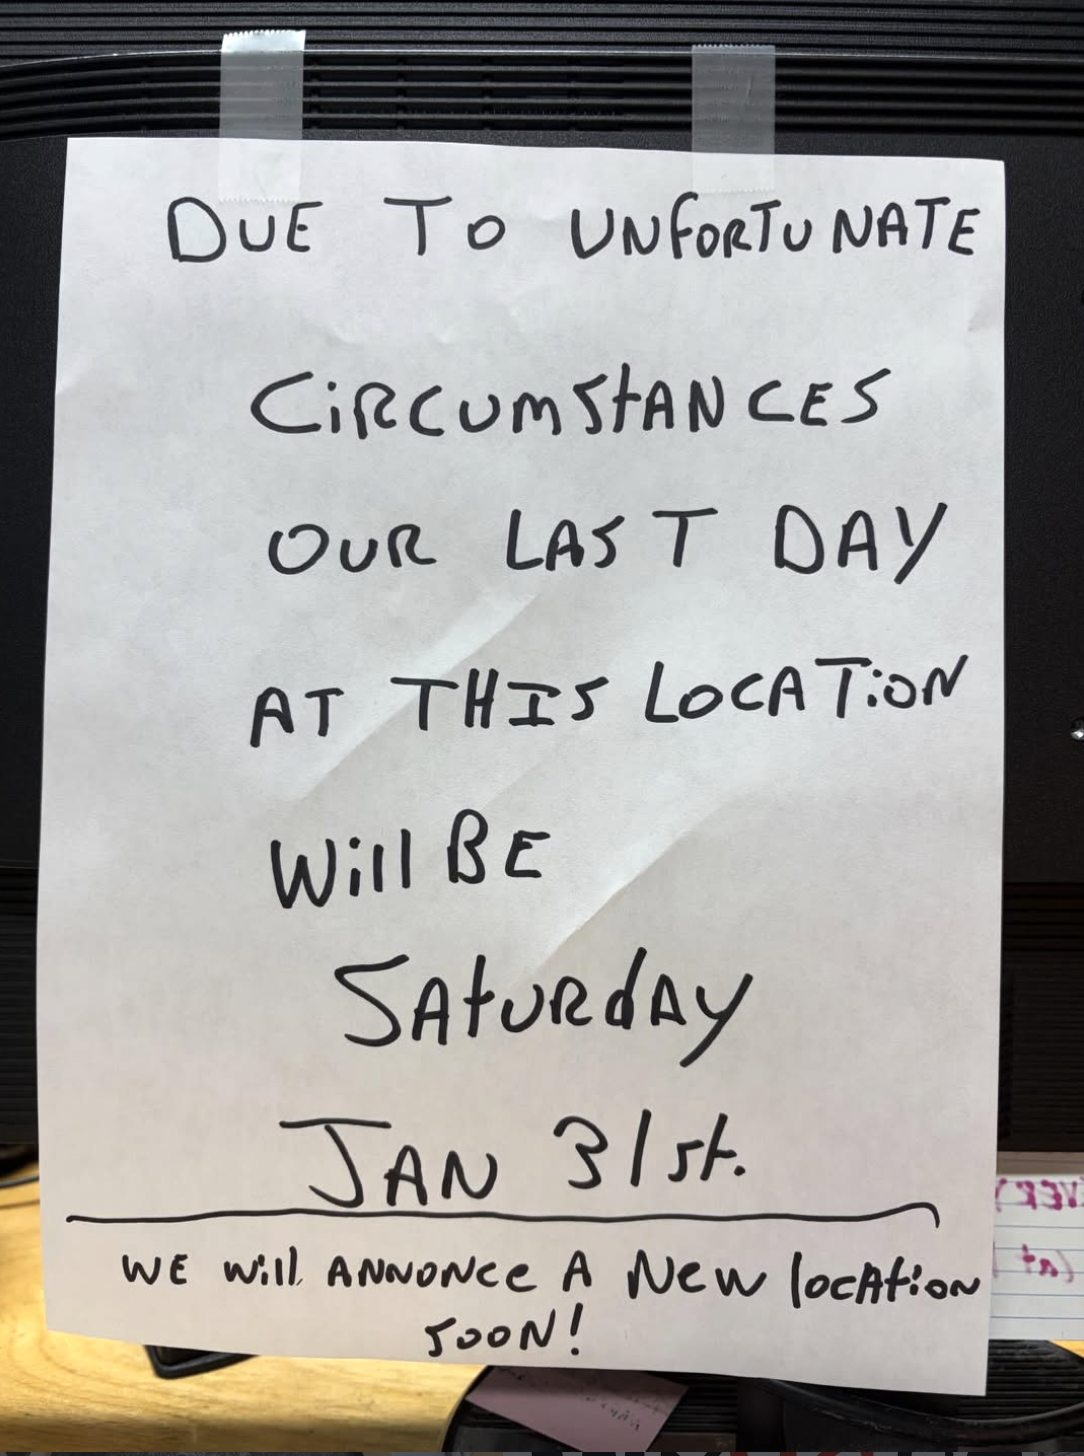 DUE TO UNFORTUNATE
CiRCUMStANCES
OUR LAST DAY
AT THIS LOCATiON
Will BE
SAtURdAY
JAN 31st.
WE will ANNONce A New locAtioN
SOON!
VER
(at